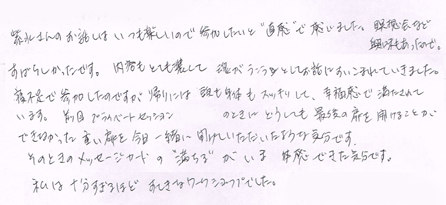 さんのお話しは いつも楽しいので参加したいと"直感"で感じました。瞑想会など
興味もあったので。
すばらしかったです。内容もとても楽しくて 魂がうきうきとしてお話にすいこまれていきました。
寝不足で参加したのですが 帰りには 頭も身体も スッキリして、幸福感で満たされて
います。 プライベートセッション のときに どうしても 最後の扉を開けることが
できなかった 重い扉を 今日 一緒に 開けていただいたような気分です。
そのときのメッセージカードの "満ちる" が いま 体感できた気分です。
私は 十分すぎるほど すてきなワークショップでした。